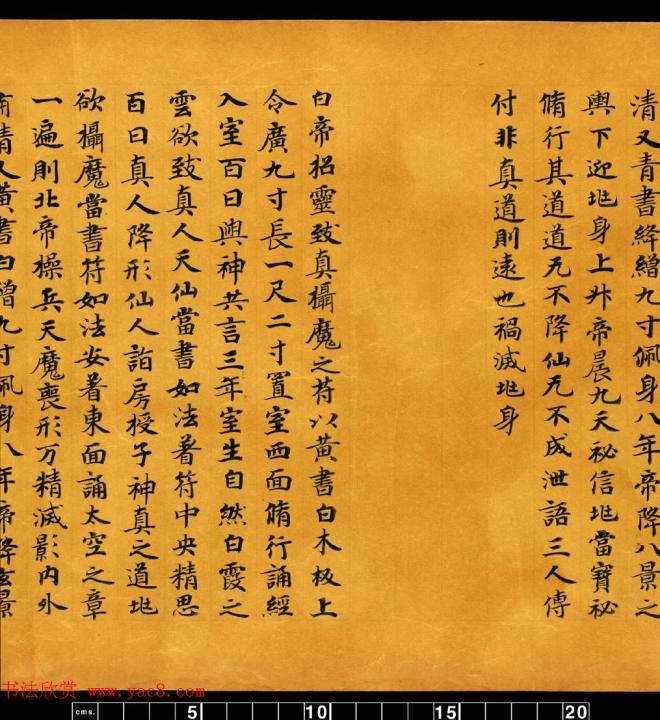 清又青書絳繒九寸佩身八年帝降八景之
輿下迎地身上升帝晨九天祕信地當寶祕
脩行其道道无不降仙无不成泄語三人傳
付非真道則遠也禍滅地身
白帝招靈致真攝魔之符以黃書白木板上
令廣九寸長一尺二寸置室西面脩行誦經
入室百日與神共言三年室生自然白霞之
雲欲致真人天仙當書如法著符中央精思
百日真人降形仙人詣房授子神真之道地
欲攝魔當書符如法安著東面誦太空之章
一遍則北帝操兵天魔喪形万精滅影內外
清又黃書白繒九寸佩身八年帝降玄景
书法欣赏 www.yac8.com
cms. 5 10 15 20